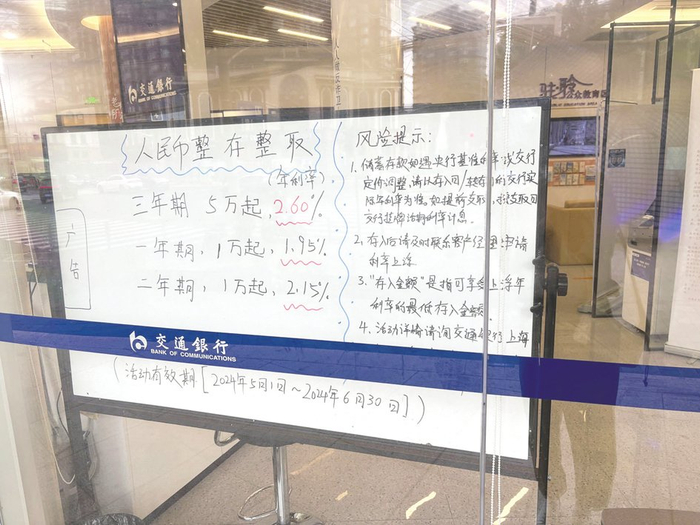 交通银行
BANK OF COMMUNICATIONS
人民币整存整取
(年利率)
三年期 5万起, 2.60%
一年期, 1万起, 1.95%
二年期, 1万起, 2.15%
广告
风险提示:
1. 储蓄存款如遇央行基准利率/交行
定价调整,请以存入日/转存日的交行实
际年利率为准。如提前支取,按支取日
交行挂牌活期利率计息。
2. 存入后请及时联系客户经理申请
利率上浮
3. “存入金额”是指可享受上浮年
利率的最低存入金额。
4. 活动详情请询交通银行上海
交通銀行
BANK OF COMMUNICATIONS
(活动有效期[2024年5月1日~2024年6月30日])
众教育区